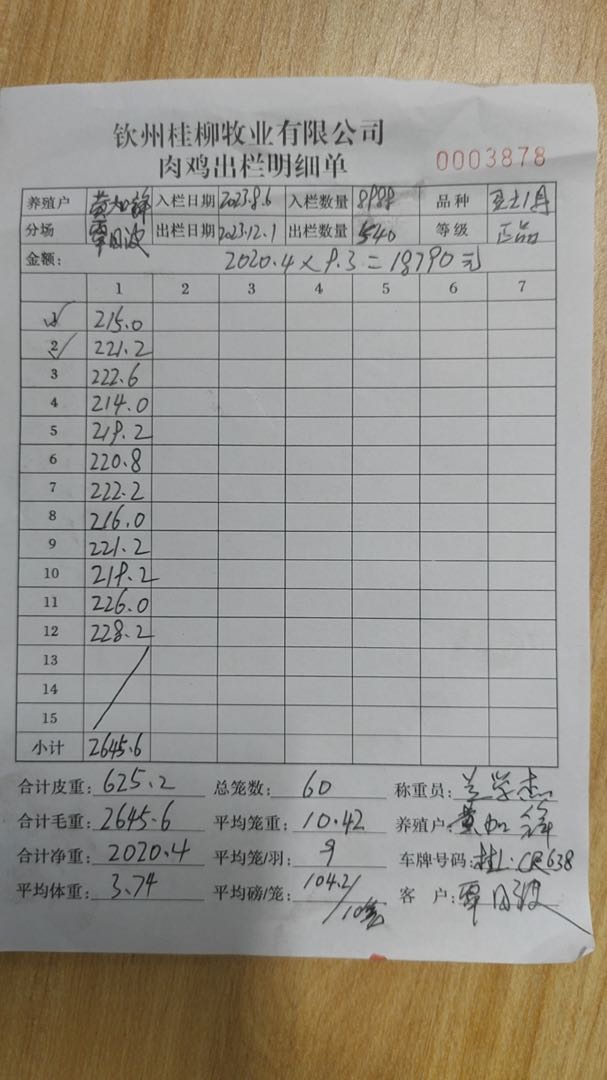 钦州桂柳牧业有限公司
肉鸡出栏明细单 0003878
养殖户 黄如锋 入栏日期 2023.8.6 入栏数量 8988 品种
分场 覃日波 出栏日期 2023.12.1 出栏数量 540 等级 正品
金额: 2020.4×9.3=18790元
1 2 3 4 5 6 7
1 215.0
2 221.2
3 222.6
4 214.0
5 219.2
6 220.8
7 222.2
8 216.0
9 221.2
10 219.2
11 226.0
12 228.2
13
14
15
小计 2645.6
合计皮重: 625.2 总笼数: 60 称重员: 兰学杰
合计毛重: 2645.6 平均笼重: 10.42 养殖户: 黄如锋
合计净重: 2020.4 平均笼/羽: 9 车牌号码: 桂L·CR638
平均体重: 3.74 平均磅/笼: 104.2/10笼 客户: 覃日波